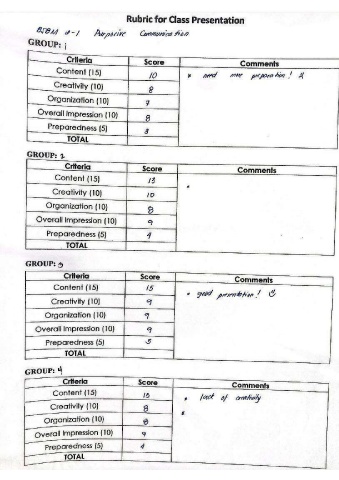 Rubric for Class Presentation
Purposive Communication
GROUP: 1
Criteria Score Comments
Content (15) 10 * need more preparation!
Creativity (10) 8
Organization (10) 7
Overall Impression (10) 8
Preparedness (5) 3
TOTAL
GROUP: 2
Criteria Score Comments
Content (15) 13 *
Creativity (10) 10
Organization (10) 8
Overall Impression (10) 9
Preparedness (5) 4
TOTAL
GROUP: 3
Criteria Score Comments
Content (15) 15 * good presentation! ☺
Creativity (10) 9
Organization (10) 9
Overall Impression (10) 9
Preparedness (5) 5
TOTAL
GROUP: 4
Criteria Score Comments
Content (15) * lack of creativity
Creativity (10) 8 *
Organization (10) 8
Overall Impression (10) 9
Preparedness (5) 4
TOTAL